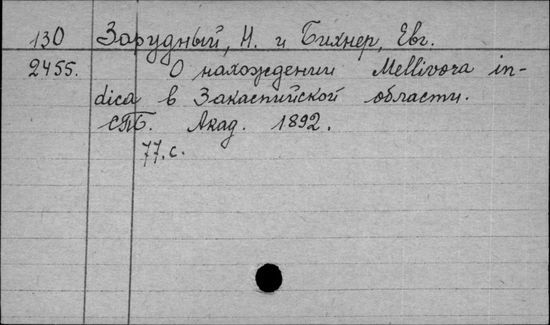 130 Зарудный, Н. и Бихнер, Евг.
2455. О нахождении Mellivora in-
dica в Закаспийской области.
СПБ. Акад. 1892.
77. с.